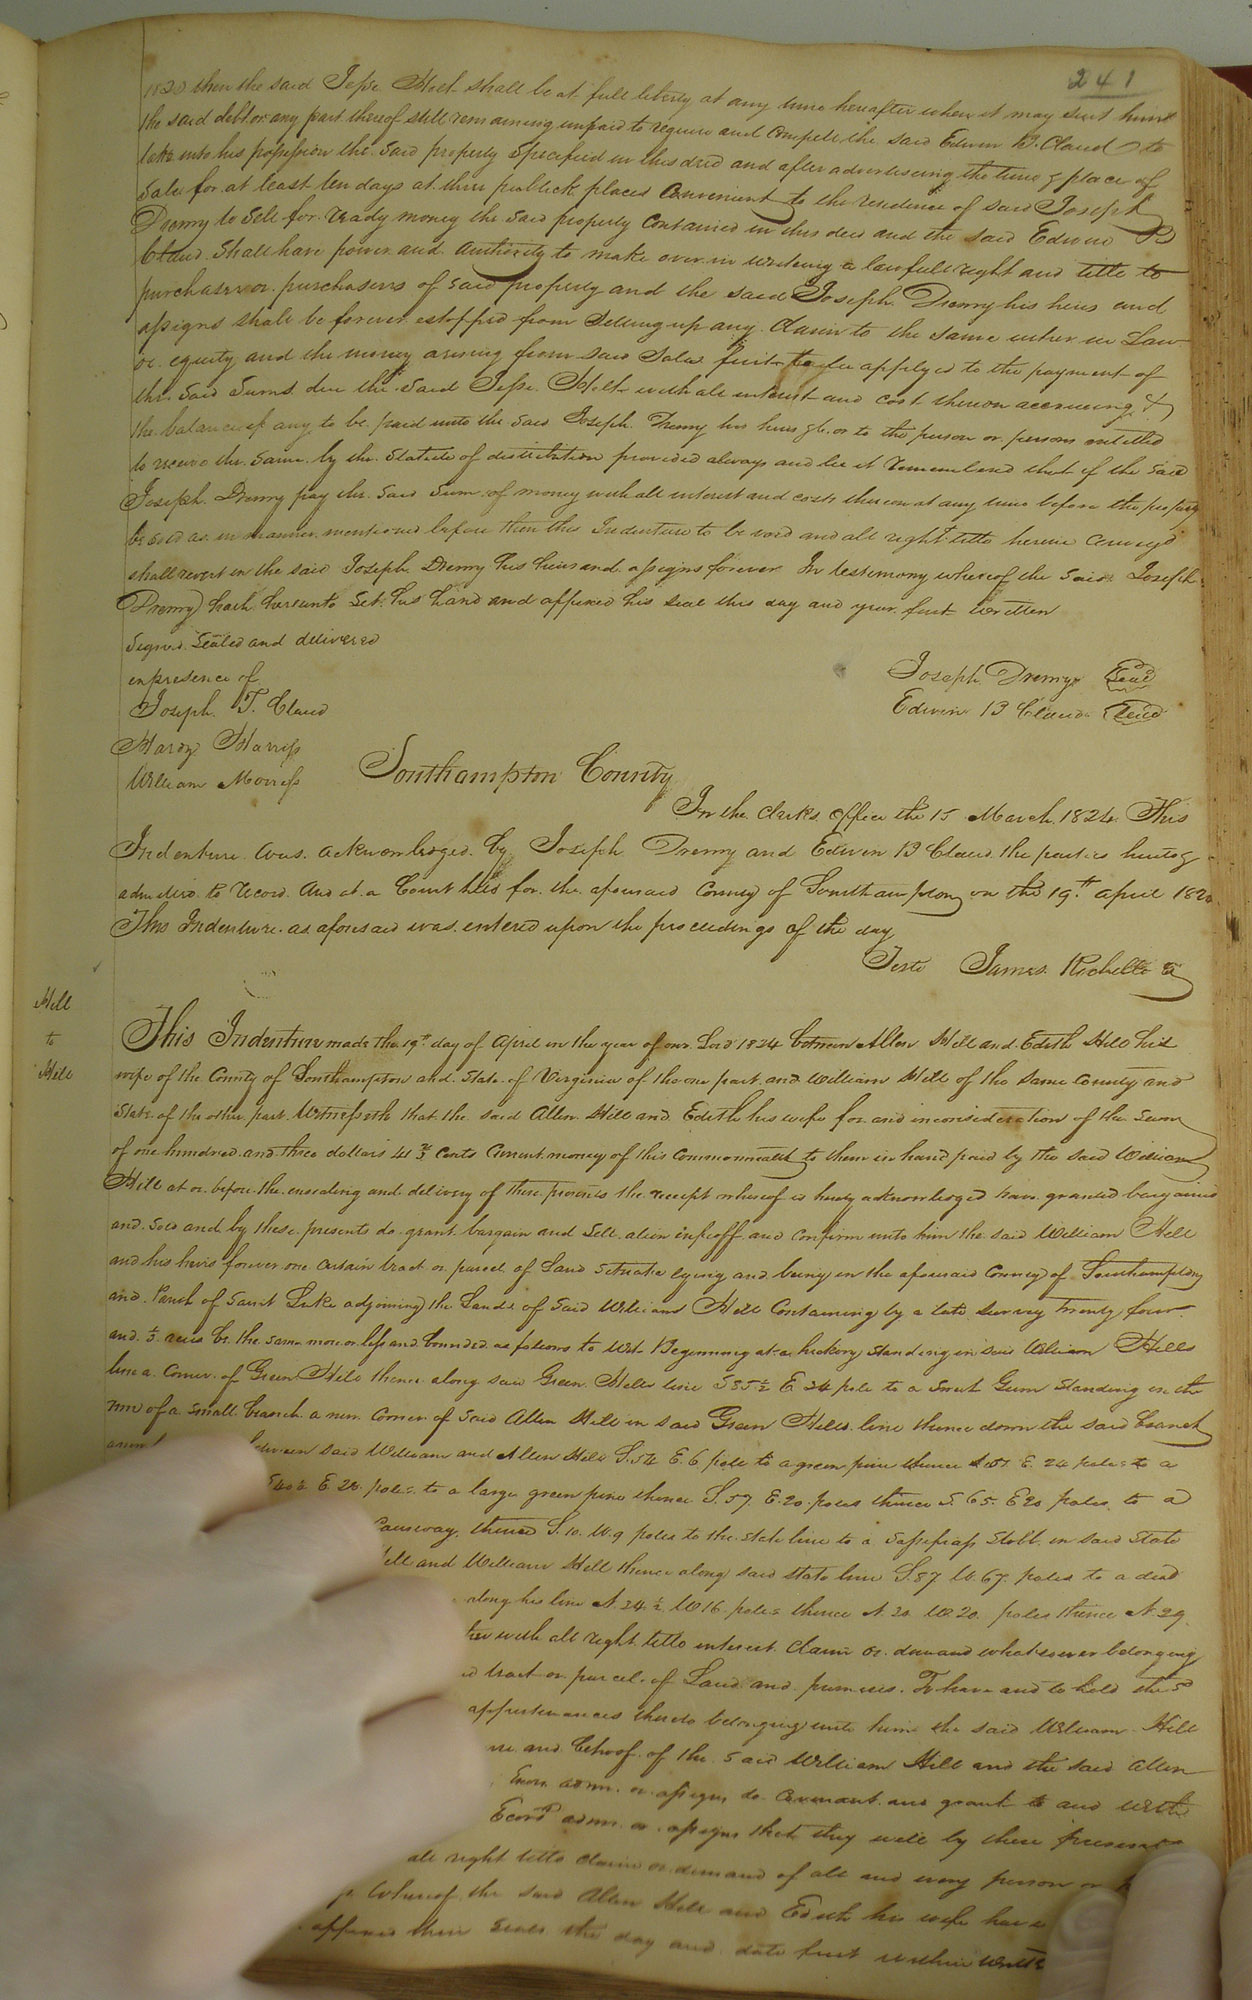 241
then the said Jesse Holt shall be at full liberty at any time hereafter when it may suit him
the said debt or any part thereof still remaining unpaid to require and compell the said Edwin B. Claud to
take into his possession the said property specified in this deed and after advertiseing the time & place of
Sale for at least ten days at three publick places convenient to the residence of said Joseph
Dremy to Sell for ready money the said property contained in this deed and the said Edwin B
Claud Shall have power and authority to make over in writeing a lawfull right and title to
purchaser or purchasers of said property and the said Joseph Dremy his heirs and
assigns shall be forever estopped from Setting up any Claim to the same either in Law
or equity and the money arising from said Sale first to be applyed to the payment of
the Said Sums due the Said Jesse Holt with all interest and cost thereon accrueing &
the balance if any to be paid unto the said Joseph Dremy his heirs &c. or to the person or persons entitled
to receive the Same by the Statute of distribution provided always and be it remembered that if the said
Joseph Dremy pay the Said Sum of money with all interest and costs thereon at any time before the property
be sold as in manner mentioned before then this Indenture to be void and all right title herein conveyd
shall revert in the said Joseph Dremy his heirs and assigns forever In testimony whereof the said Joseph
Dremy hath hereunto Set his hand and affixed his seal this day and year first written
Signed Sealed and delivered
in presence of
Joseph Dremy Seal
Joseph T. Claud
Edwin B Claud Seal
Hardy Harriss
William Morriss
Southampton County
In the Clerks Office the 15 March 1824 This
Indenture was acknowledged by Joseph Dremy and Edwin B Claud the parties hereto &
admitted to record And at a Court held for the aforesaid County of Southampton on the 19th april
This Indenture as aforesaid was entered upon the proceedings of the day
Teste James Rochelle
Hill
to
Hill
This Indenture made the 19th day of April in the year of our Lord 1824 between Allen Hill and Edith Hill his
wife of the County of Southampton and State of Virginia of the one part and William Hill of the same County and
State of the other part Witnesseth that the said Allen Hill and Edith his wife for and in consideration of the Sum
of one hundred and three dollars 41 Cents Current money of this Commonwealth to them in hand paid by the said William
Hill at or before the ensealing and delivery of these presents the receipt whereof is hereby acknowledged have granted bargained
and sold and by these presents do grant bargain and Sell alien infeoff and confirm unto him the said William Hill
and his heirs forever one certain tract or parcel of Land situate lying and being in the aforesaid County of Southampton
and Parish of Saint Luke adjoining the Lands of said William Hill Containing by a late survey twenty four
and acres be the same more or less and bounded as follows to wit Beginning at a hickory standing in said William Hills
line a Corner of Green Hill thence along said Green Hills line S 85½ E 34 pole to a Sweet Gum Standing in the
run of a small branch a new corner of said Allen Hill in said Green Hills line thence down the said branch
between said William and Allen Hill S. 54 E. 6 pole to a green pine thence E. 24 poles to a
E. 28 poles to a large green pine thence S. 57 E. 20 poles thence S. 65 E 20 poles to a
Causway, thence S. 10. W. 9 poles to the state line to a sassafrass stobb in said State
Hill and William Hill thence along said state line S. 87 W. 67 poles to a dead
along his line N. 24½ W 16 poles thence N. 20 W 20 poles thence N. 29
with all right title interest claim or demand whatsoever belonging
tract or parcel of Land and premises. To have and to hold the sd
appurtenances thereto belonging unto him the said William Hill
and behoof of the said William Hill and the said Allen
Exors admr. or assigns do covenant and grant to and with
admr. or assigns that they will by these presents
all right title claim or demand of all and every person or
Whereof the said Allen Hill and Edith his wife have
affixed their seals the day and date first within